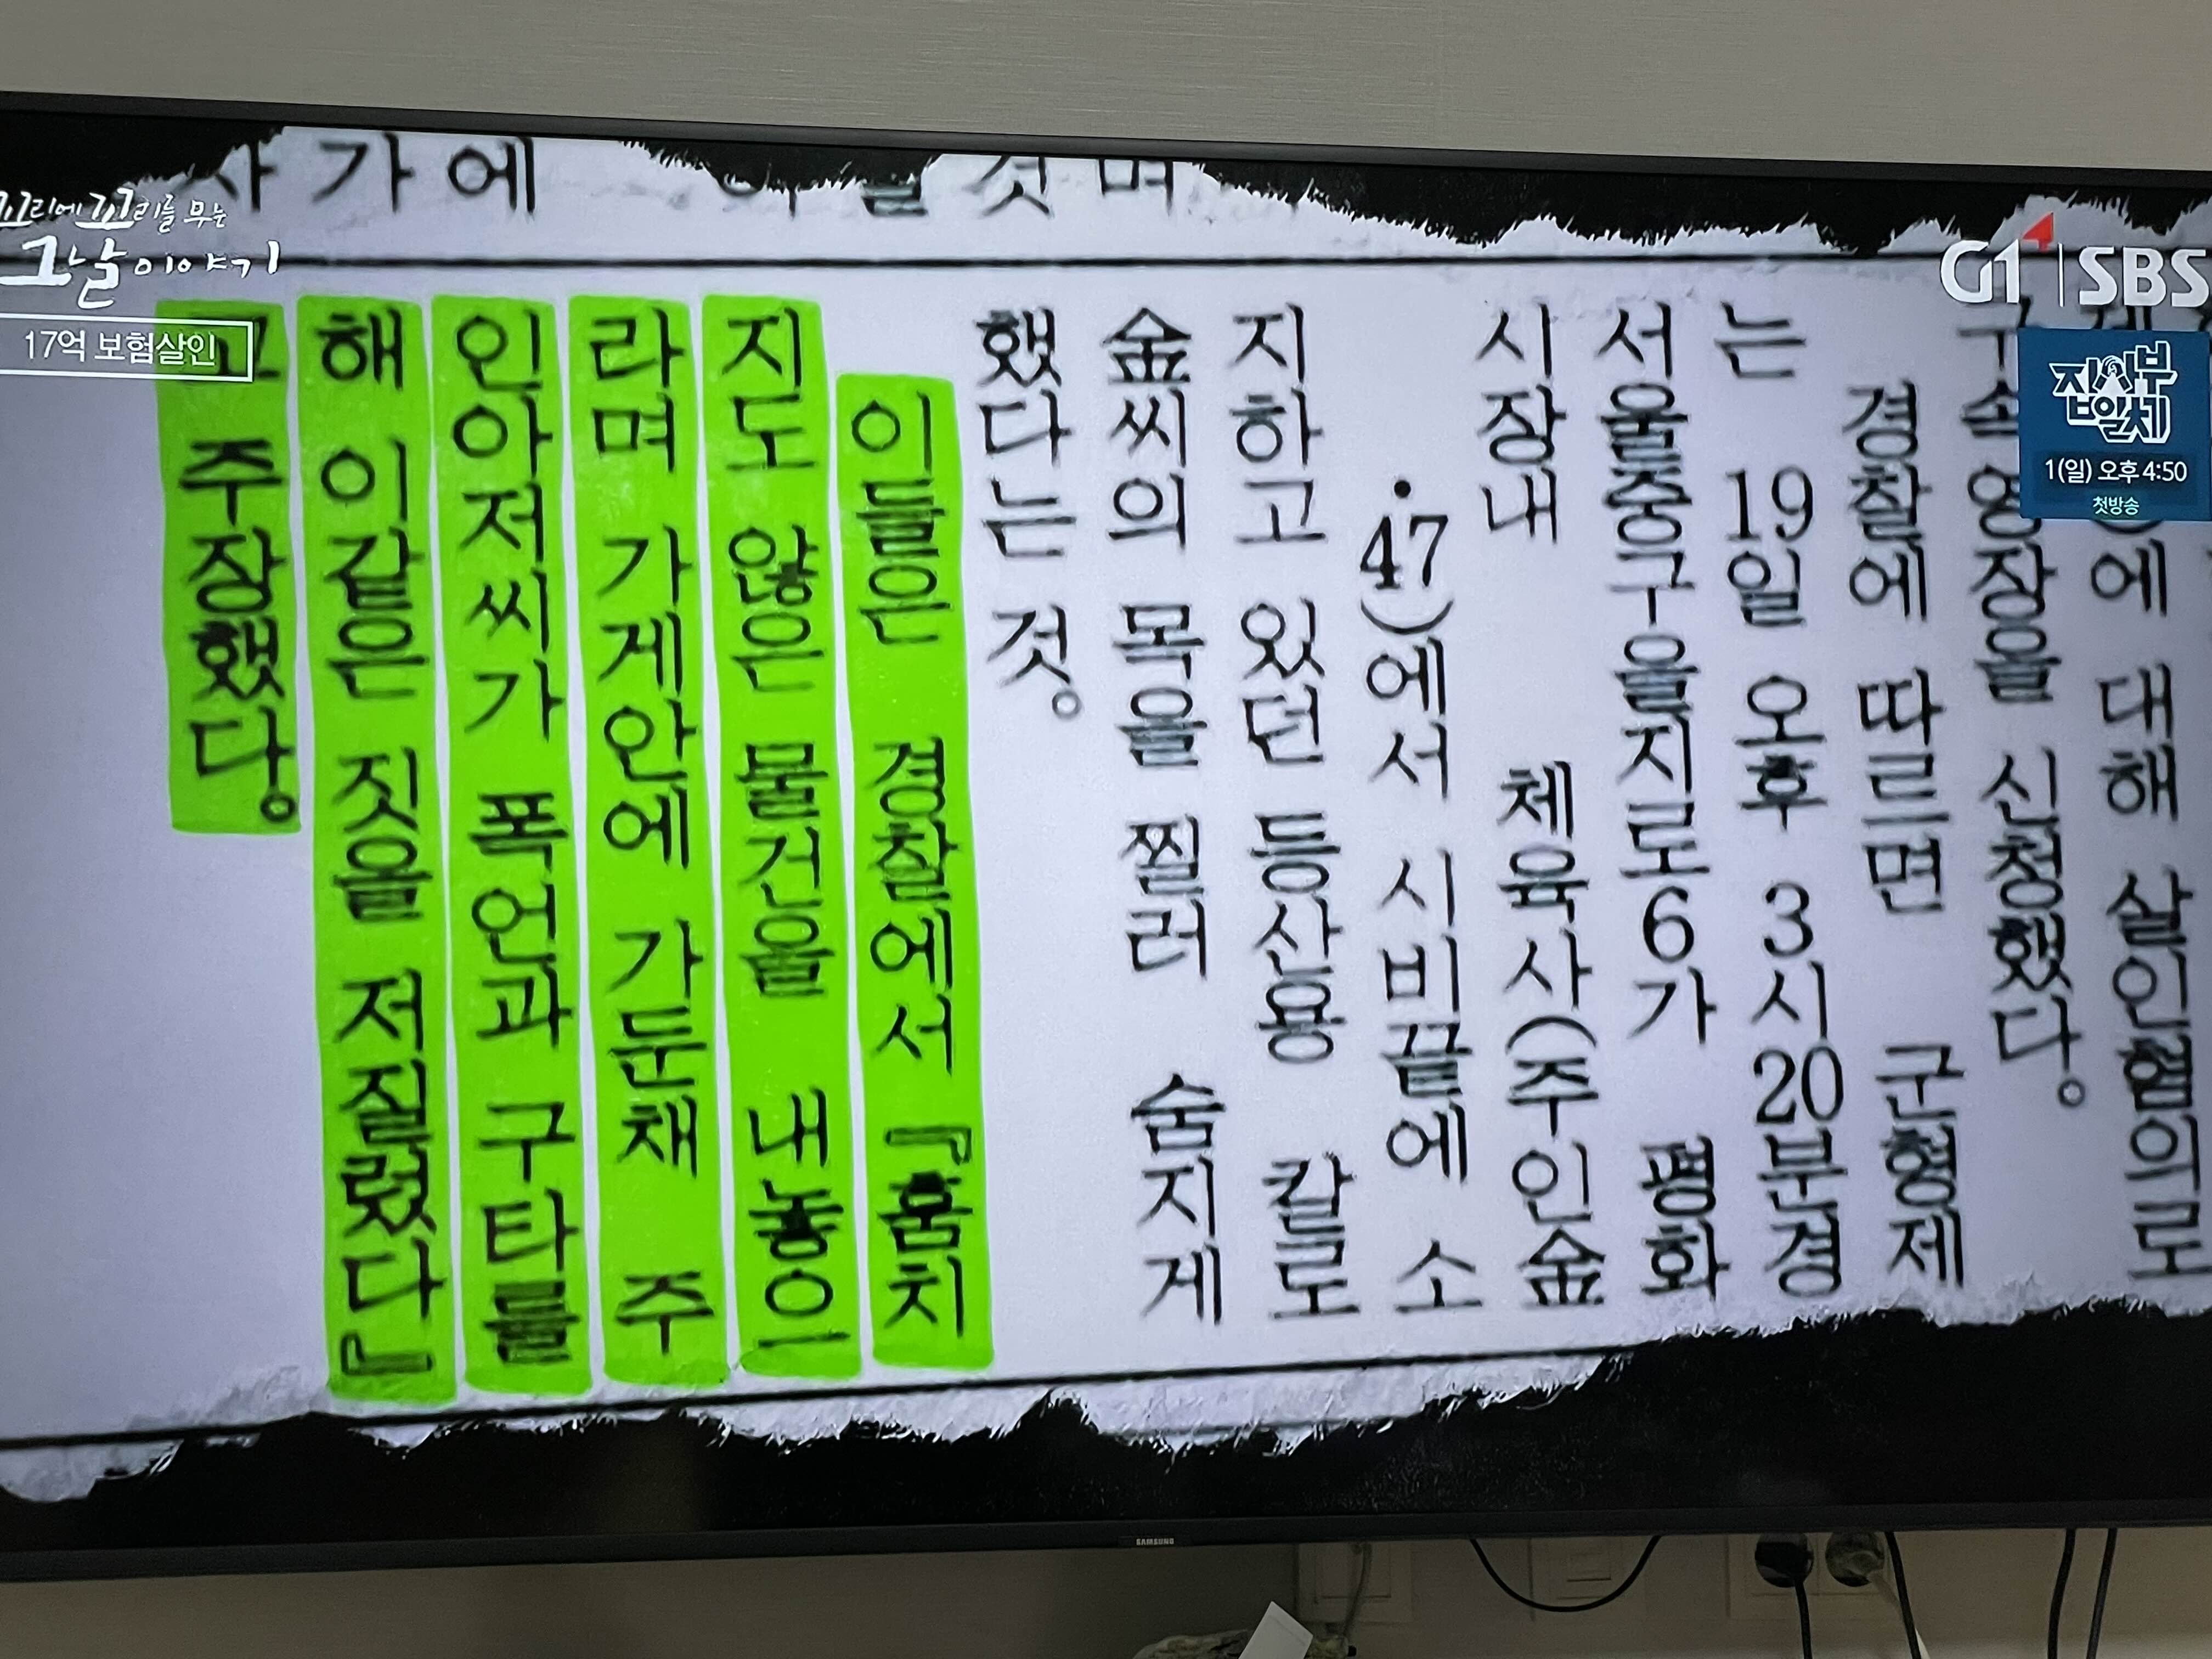 꼬리에 꼬리를 무는
그날 이야기
17억 보험살인
G1 SBS
집사부
일체
1(일) 오후 4:50
첫방송
가에
에 대해 살인혐의로
구속영장을 신청했다。
경찰에 따르면 군형제
는 19일 오후 3시20분경
서울중구을지로6가 평화
시장내 체육사(주인金
·47)에서 시비끝에 소
지하고 있던 등산용 칼로
金씨의 목을 찔러 숨지게
했다는 것。
이들은 경찰에서 『훔치
지도 않은 물건을 내놓으
라며 가게안에 가둔채 주
인아저씨가 폭언과 구타를
해 이같은 짓을 저질렀다』
고 주장했다。
SAMSUNG